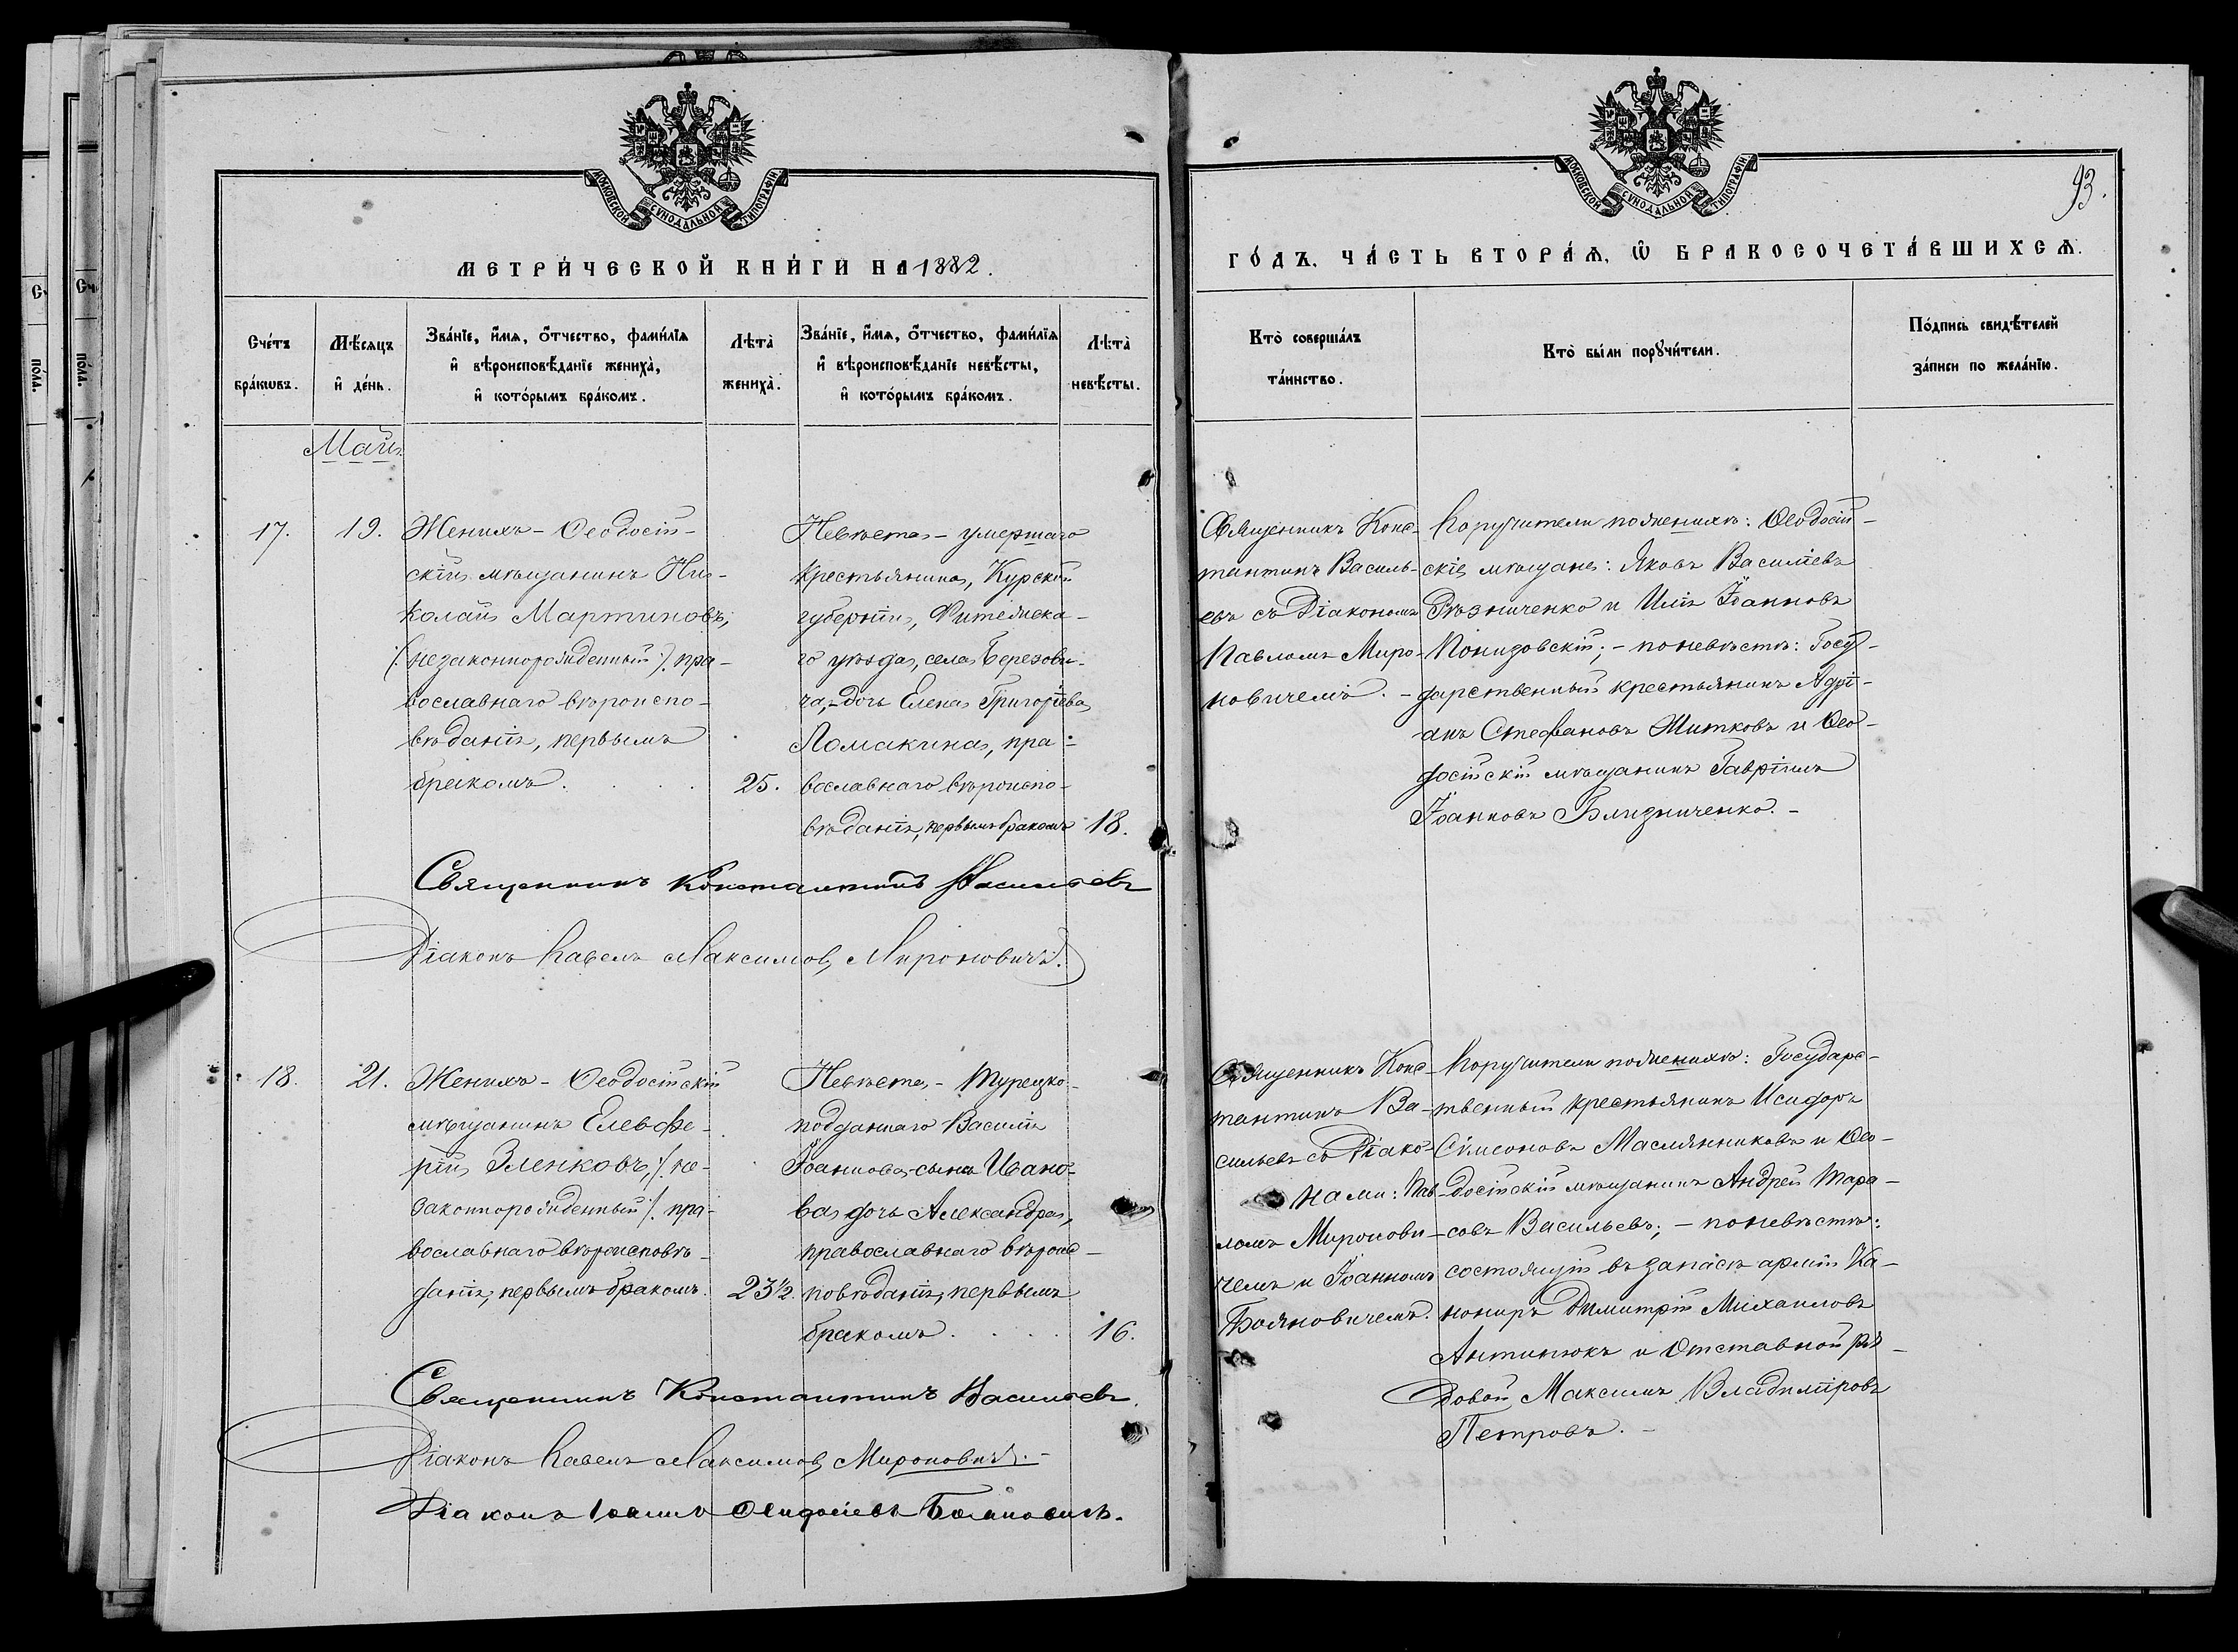 МОСКОВСКОЙ СѴНОДАЛЬНОЙ ТИПОГРАФІИ
МЕТРИ́ЧЕСКОЙ КНИ́ГИ НА 1882.
Сче́тъ бра́кωвъ.
Мѣ́сяцъ и҆ де́нь.
Зва́нїе, и҆́мѧ, ѻ҆́тчество, фами́лїѧ
и҆ вѣроисповѣ́данїе жениха̀,
и҆ кото́рымъ бра́комъ.
Лѣта̀ жениха̀.
Зва́нїе, и҆́мѧ, ѻ҆́тчество, фами́лїѧ
и҆ вѣроисповѣ́данїе невѣ́сты,
и҆ кото́рымъ бра́комъ.
Лѣта̀ невѣ́сты.
Май
17.
19.
Женихъ - Ѳеодосій-
скій мѣщанинъ Ни-
колай Мартиновъ,
(незаконнорожденный) пра-
вославнаго вѣроиспо-
вѣданія, первымъ
бракомъ.
25.
Невѣста - умершаго
крестьянина, Курской
губерніи, Фитежска-
го уѣзда, села Березови-
ча, - дочь Елена Григоріева
Ломакина, пра-
вославнаго вѣроиспо-
вѣданія, первымъ бракомъ
18.
Священникъ Константинъ Васильевъ
Діаконъ Павелъ Максимов. Мироновичъ.
18.
21.
Женихъ - Ѳеодосійскій
мѣщанинъ Елевфе-
рій Зленковъ, /. не-
законнорожденный /. пра-
вославнаго вѣроисповѣ-
данія, первымъ бракомъ.
23½.
Невѣста, - Турецко-
подданнаго Василія
Іоаннова сына Ивано-
ва дочь Александра,
православнаго вѣроис-
повѣданія, первымъ
бракомъ
16.
Священникъ Константинъ Васильевъ.
Діаконъ Павелъ Максимов. Мироновичъ. -
Діаконъ Іоаннъ Бояновичъ.
МОСКОВСКОЙ СѴНОДАЛЬНОЙ ТИПОГРАФІИ
93.
ГО́ДЪ. ЧА́СТЬ ВТОРА́Ѧ, Ѽ БРАКОСОЧЕТА́ВШИХСѦ.
Кто̀ соверша́лъ та́инство.
Кто̀ бы́ли порꙋчи́тели.
По́дпись свидѣ́телей за́писи по жела́нїю.
Священникъ Конс-
тантинъ Василь-
евъ съ Діакономъ
Павломъ Миро-
новичемъ. -
Поручители по женихѣ: Ѳеодосій-
скіе мѣщане: Яковъ Василіевъ
Рѣзниченко и Илія Іоанновъ
Понизовскій; - по невѣстѣ: Госу-
дарственный крестьянинъ Адрі-
анъ Стефановъ Житковъ и Ѳео-
досійскій мѣщанинъ Гавріилъ
Іоанновъ Близниченко. -
Священникъ Конс-
тантинъ Ва-
сильевъ съ Діако-
нами: Пав-
ломъ Миронови-
чемъ и Іоанномъ
Бояновичемъ.
Поручители по женихѣ: Государс-
твенный крестьянинъ Исидоръ
Сѵмеоновъ Маслянниковъ и Ѳео-
досійскій мѣщанинъ Андрей Тара-
совъ Васильевъ; - по невѣстѣ:
состоящій въ запасѣ арміи Ка-
нониръ Димитрій Михаиловъ
Антинюкъ и Отставной ря-
довой Максимъ Владиміровъ
Петровъ. -